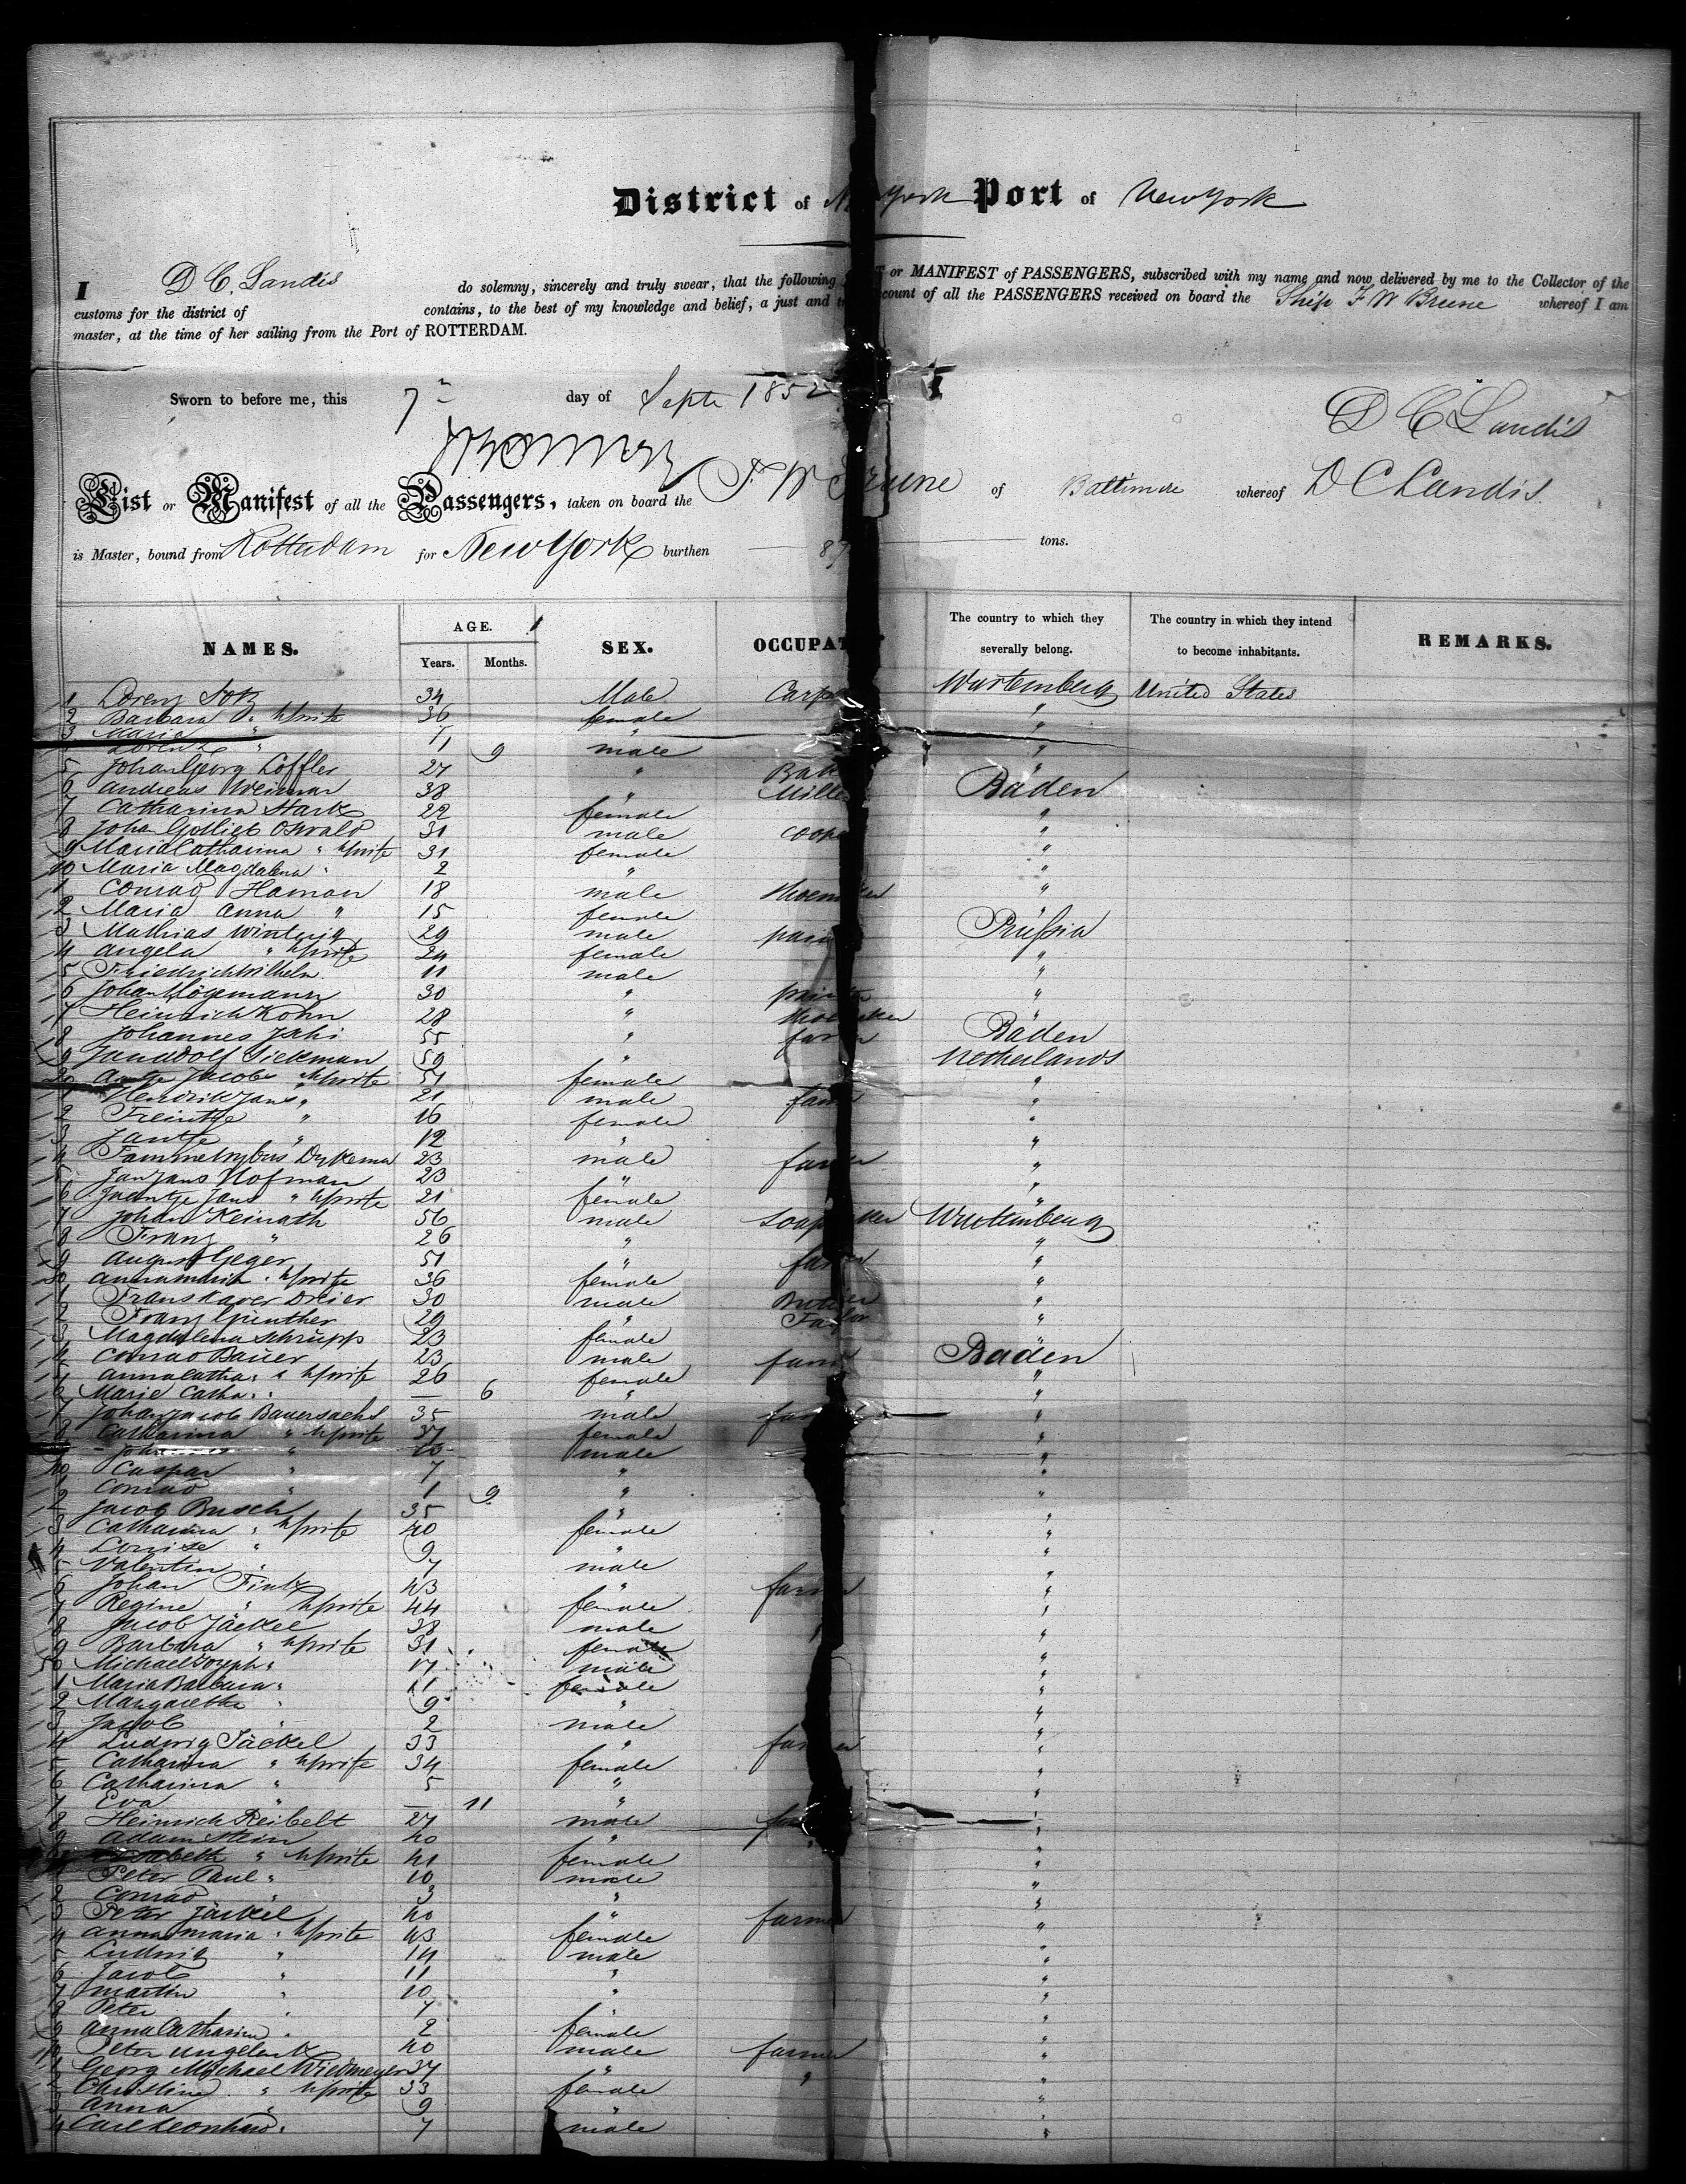 District of New York Port of New York
I D C. Landis do solemny, sincerely and truly swear, that the following or MANIFEST of PASSENGERS, subscribed with my name and now delivered by me to the Collector of the
customs for the district of contains, to the best of my knowledge and belief, a just and count of all the PASSENGERS received on board the Ship F W Brune whereof I am
master, at the time of her sailing from the Port of ROTTERDAM.
Sworn to before me, this 7 day of Septe 1852
D C Landis
List or Manifest of all the Passengers, taken on board the F. W Brune of Baltimore whereof D C Landis
is Master, bound from Rotterdam for New York burthen 87 tons.
NAMES. AGE. Years. Months. SEX. OCCUPAT The country to which they severally belong. The country in which they intend to become inhabitants. REMARKS.
1 Lorenz 34 Male Carp Wurtemberg United States
2 Barbara " 36 female "
3 Maria " "
Lorenz " 1 9 male "
5 Johan Georg Löffler 27 " Bak "
6 Andreas Weimar 38 " Mille Baden
7 Catharina Stark 22 female "
8 Johan Gottlieb Oswald 31 male coop "
9 Maria Catharina " 31 female "
10 Maria Magdalena " 2 " "
1 Conrad Haman 18 male shoem ker "
2 Maria Anna " 15 female "
3 Mathias Wintrig 29 male Prußia
4 Angela " 24 female "
5 Friedrich Wilhelm 11 male "
6 Johan Högemann 30 " "
7 Heinrich Kohn 28 " shoe ker "
8 Johannes Jehi 55 " far r Baden
9 Jan Wolf Siekman 59 " Netherlands
20 Jacobs " 51 female "
1 Hendrik Jans " 21 male farm "
2 Freintje " 16 female "
3 Jantje " 12 " "
4 Dykema 23 male far er "
5 Jan Jans Hofman 23 " "
6 Jaantje Jans " 21 female "
7 Johan Keinath 56 male soap ker Wurtemberg
8 Franz " 26 " "
9 August Geger 51 " far er "
30 Anna Maria " 36 female "
1 Frans Xaver Dreier 30 male But er "
2 Franz Günther 29 " Taylor "
3 Magdalena Schrupp 23 female "
4 Conrad Bauer 23 male farm Baden
5 Anna Catha: " 26 female "
6 Marie Catha: " — 6 " "
7 Johan Jacob Bauersachs 35 male far "
8 Catharina " 37 female "
Joh " 10 male "
40 Caspar " 7 " "
1 Conrad " 1 9 " "
2 Jacob Busch 35 " "
3 Catharina " 40 female "
4 Louise " 9 " "
5 Valentin " 7 male "
6 Johan Fink 43 " farm "
7 Regine " 44 female "
8 Jacob Jäckel 38 male "
9 Barbara " 31 female "
50 Michael Joseph " 17 male "
1 Maria Barbara " 11 female "
2 Margaretha " 9 " "
3 Jacob " 2 male "
4 Ludwig Jäckel 33 " far er "
5 Catharina " 34 female "
6 Catharina " 5 " "
7 Eva " — 11 " "
8 Heinrich Reibelt 27 male far "
9 Adam Stein 40 " "
beth " 41 female "
1 Peter Paul " 10 male "
2 Conrad " 3 " "
3 Peter Jäckel 40 " farmer "
4 Anna Maria " 43 female "
5 Ludwig " 14 male "
6 Jacob " 11 " "
7 Martin " 10 " "
8 Peter " 7 " "
9 Anna Catharina " 2 female "
70 Peter Ungelenk 40 male farmer "
1 Georg Michael Wiedmeyer 37 " " "
2 Christine " 33 female "
3 Anna " 9 " "
4 Carl Leonhard " 7 male "